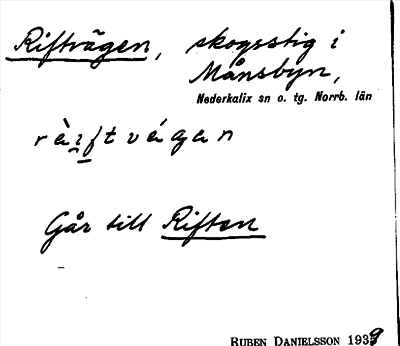 Riftvägen, skogsstig i
Månsbyn,
Nederkalix sn o. tg. Norrb. län
Går till Riften
RUBEN DANIELSSON 1939